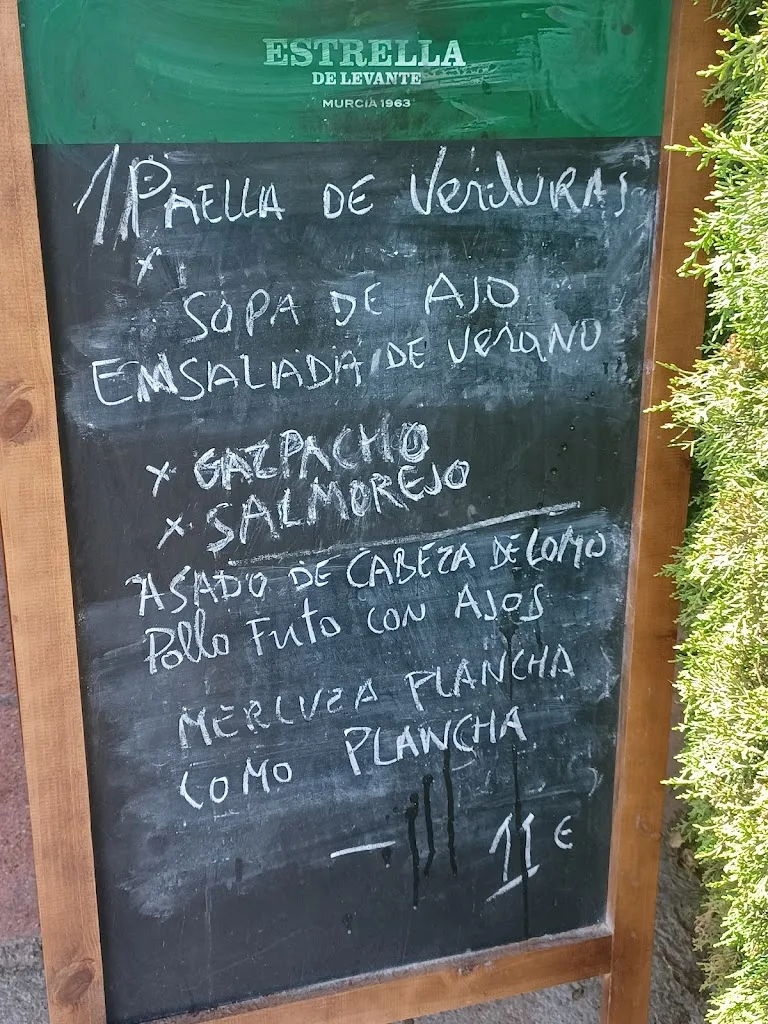 ESTRELLA
DE LEVANTE
MURCIA 1963
1/PAELLA DE VerDURAS
x
SOPA DE AJO
ENSALADA DE verano
x GAZPACHO
x SALMOREJO
ASADO DE CABEZA DE LOMO
Pollo Fritо CON AJOS
MERLUZA PLANCHA
LOMO PLANCHA
— 11 €